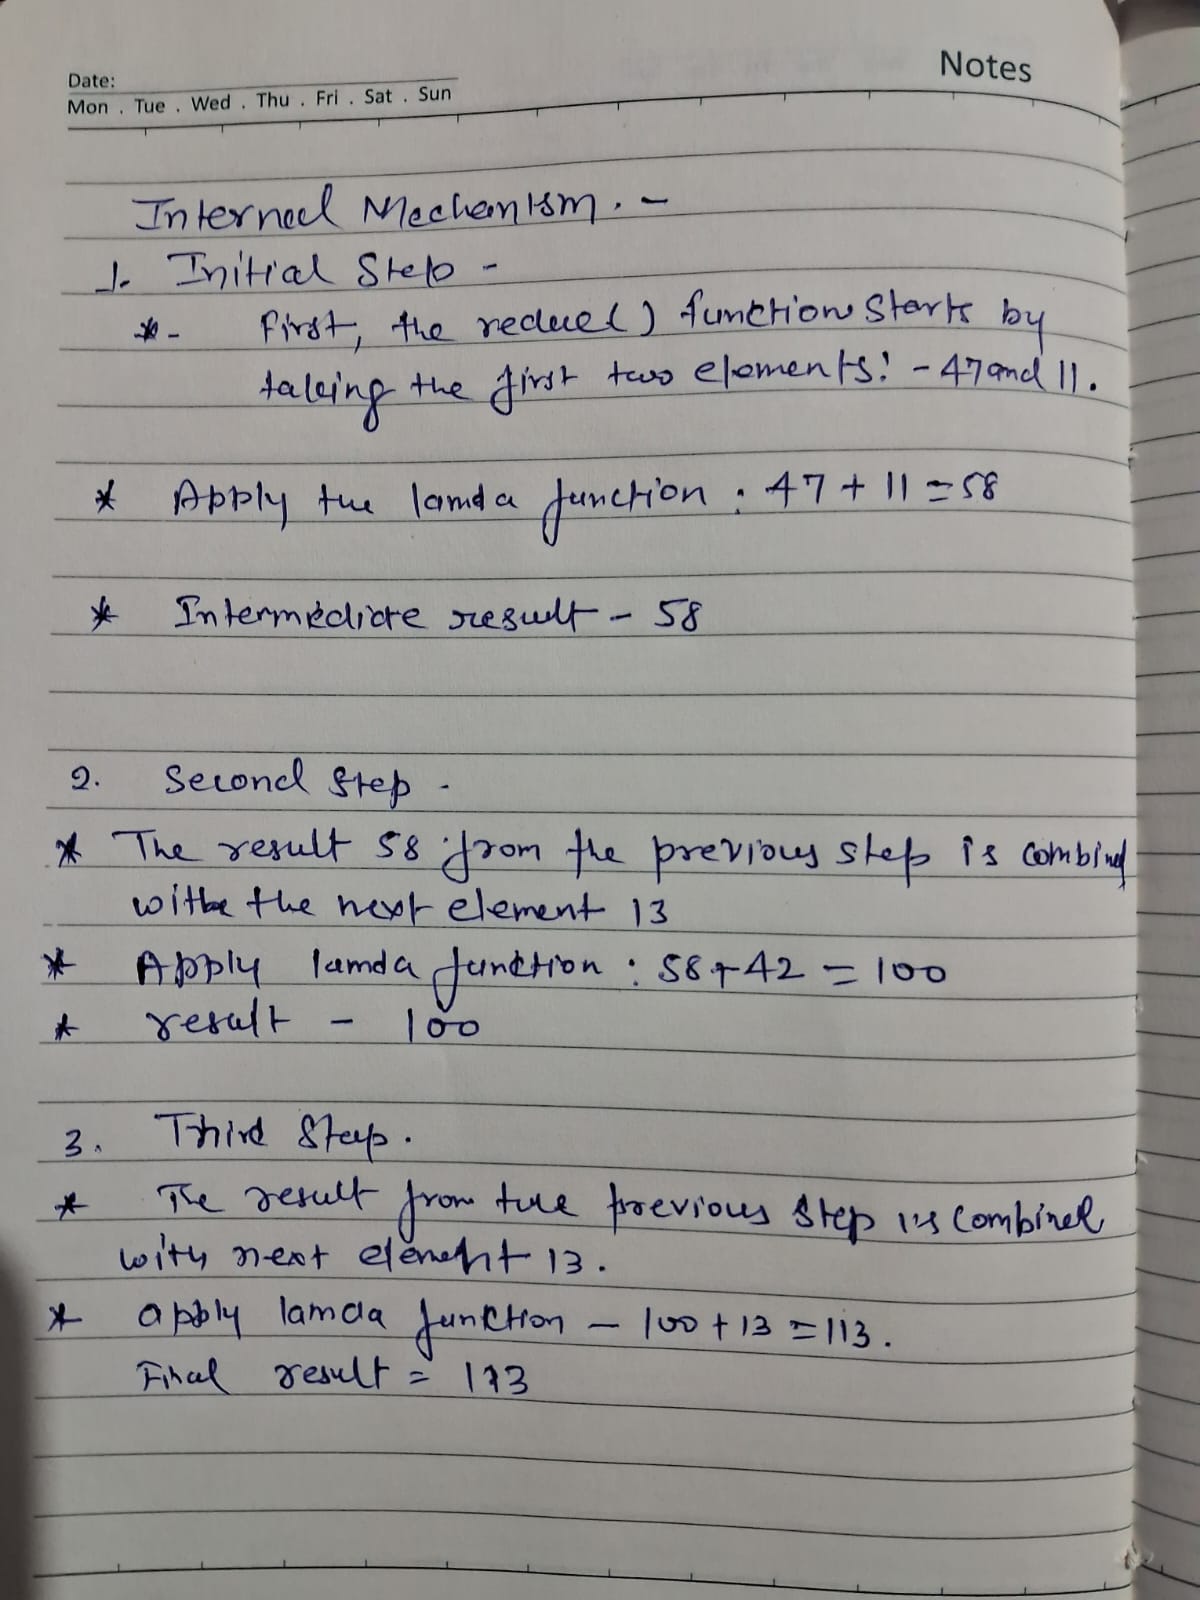 Notes
Date:
Mon . Tue . Wed . Thu . Fri . Sat . Sun
Internal Mechanism. -
1. Initial Step -
* - First, the reduce() function starts by
taking the first two elements: - 47 and 11.
* Apply the lamda function : 47 + 11 = 58
* Intermediate result - 58
2. Second Step -
* The result 58 from the previous step is combined
withe the next element 13
* Apply lamda function : 58 + 42 = 100
* result - 100
3. Third Step.
* The result from the previous step is combined
with next element 13.
* apply lamda function - 100 + 13 = 113.
Final result = 113